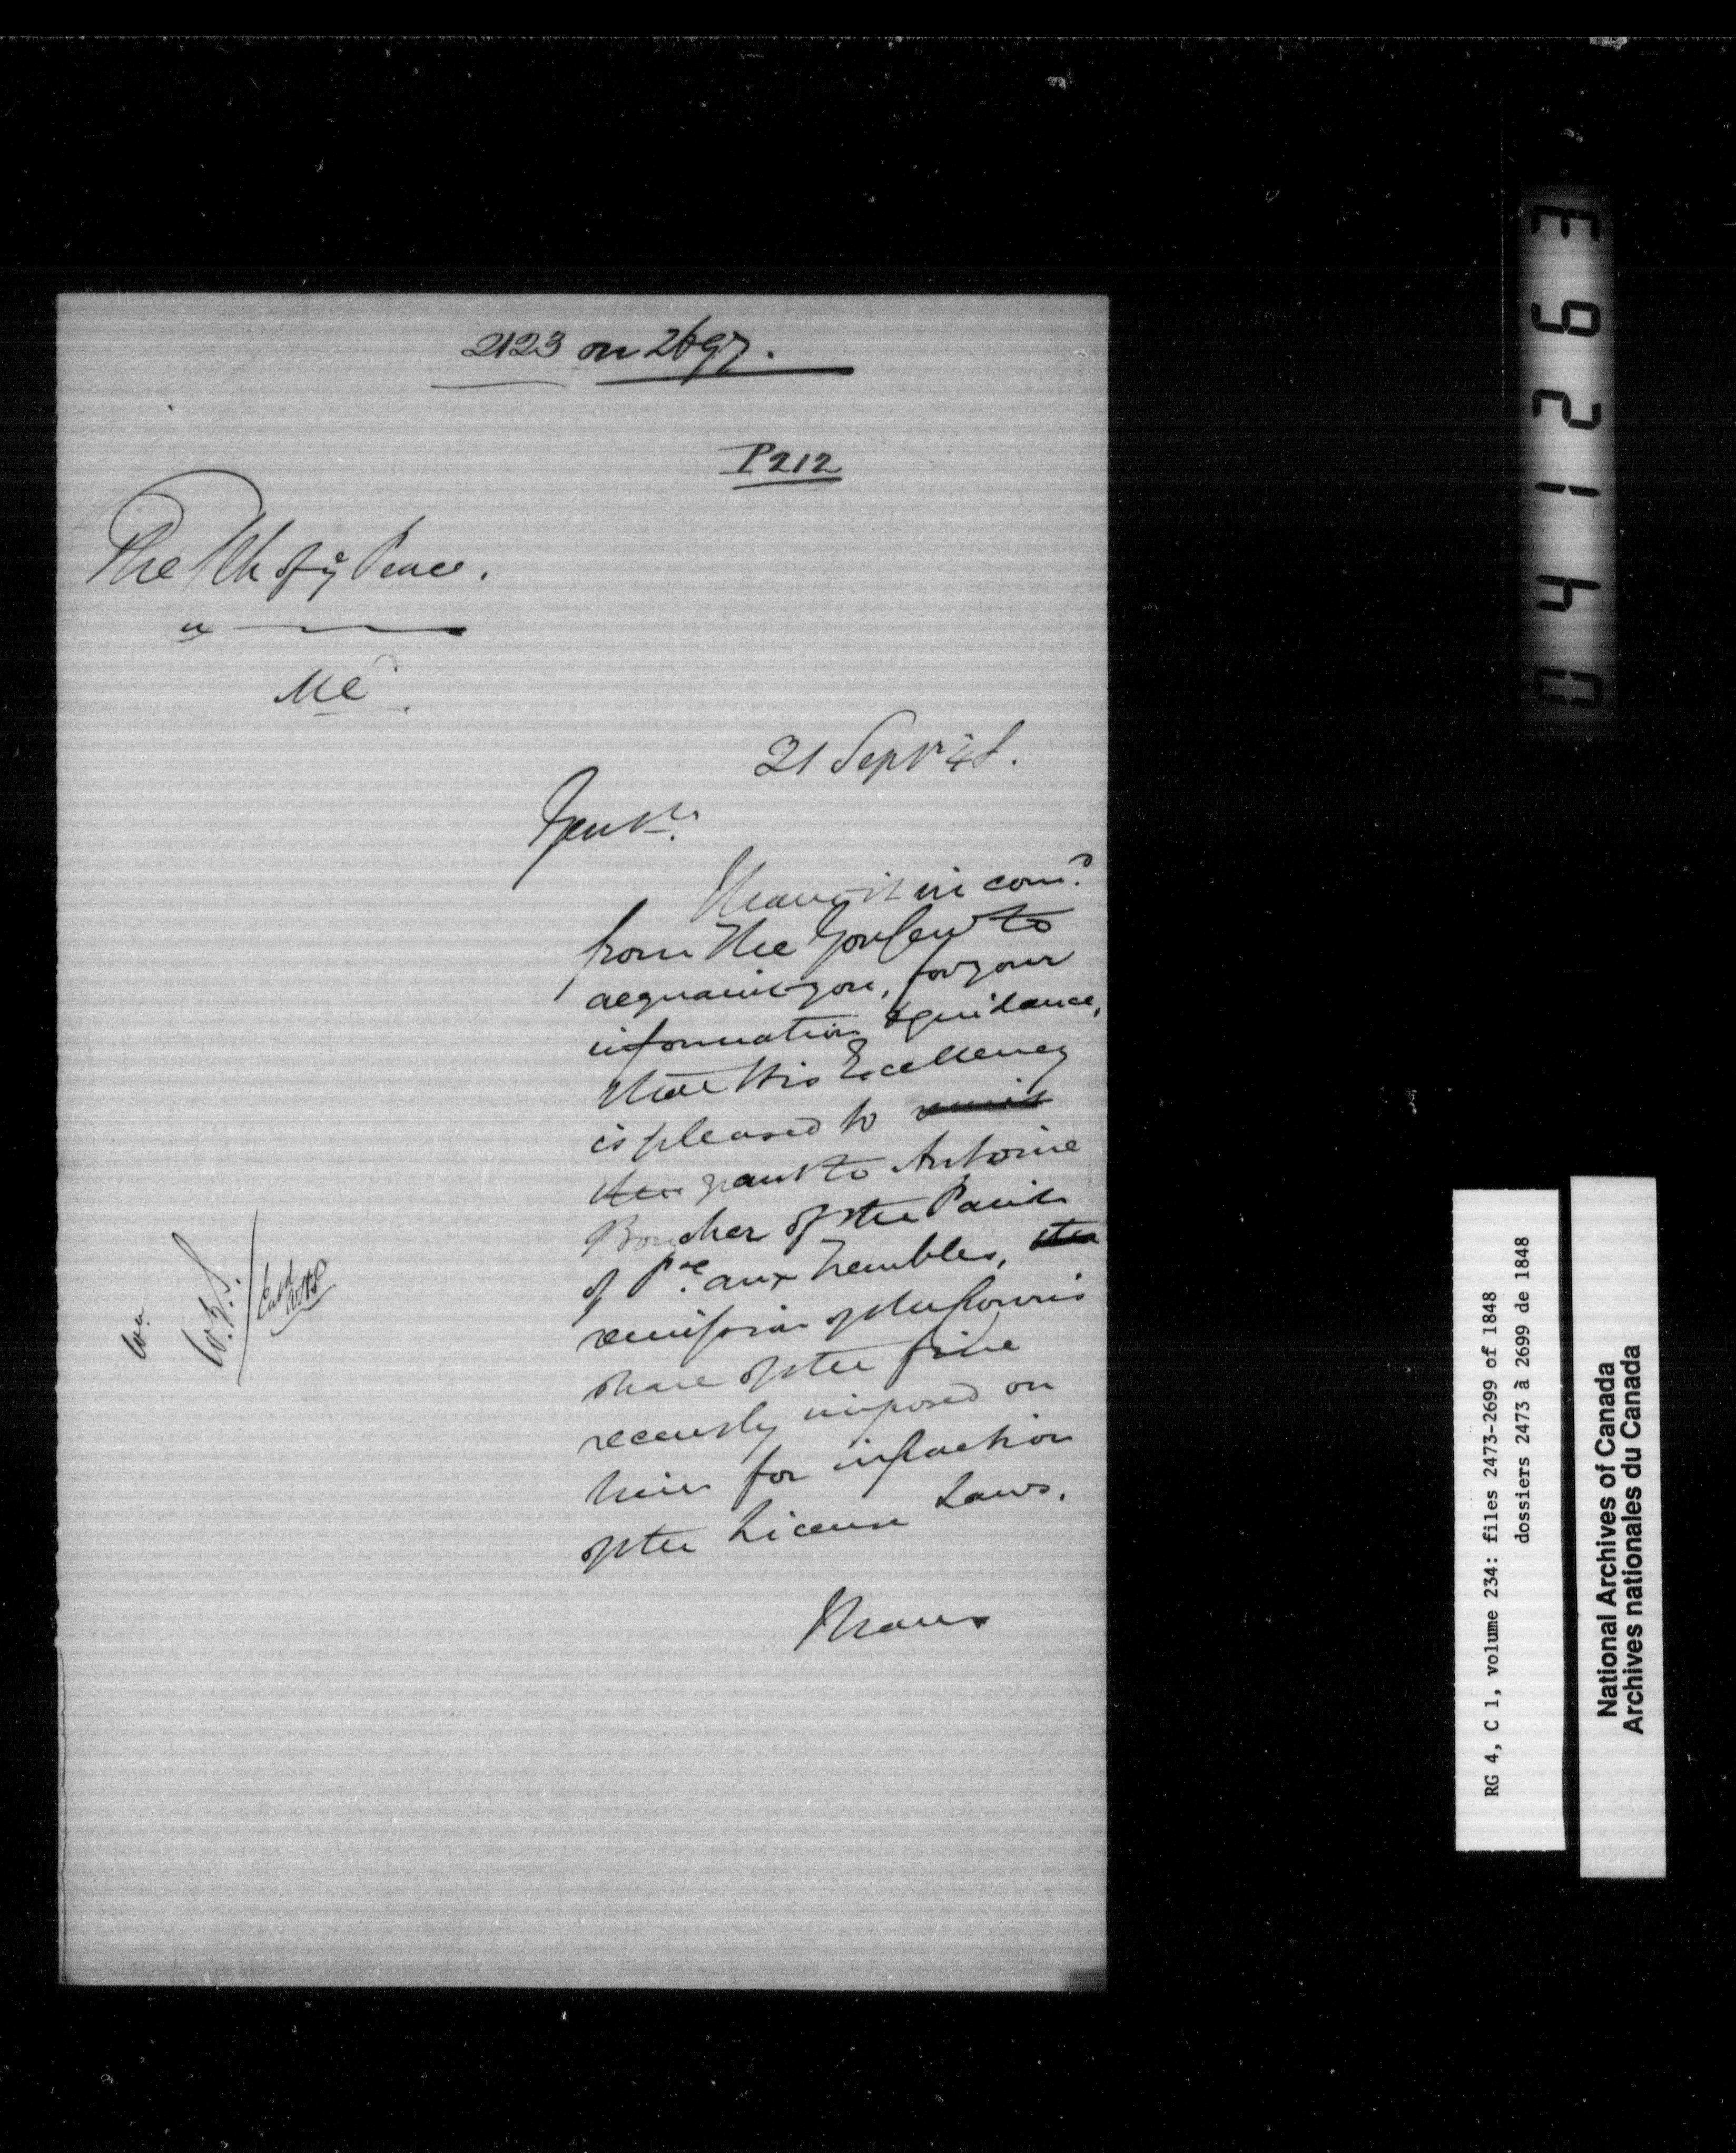 2123 on 2697.
P212
The Clk of ye Peace.
Ml
21 Septr 48.
Gentn.
I have it in comd
from the Gov Genl to
acquaint you, for your
information & guidance,
that His Excellency
is pleased to remit
the grant to Antoine
Boucher of the Parish
of Pte aux Trembles, the
remission of the Crown's
share of the fine
recently imposed on
him for infraction
of the License Laws.
I have
W.
Entd
RG 4, C 1, volume 234: files 2473-2699 of 1848
dossiers 2473 à 2699 de 1848
National Archives of Canada
Archives nationales du Canada
041263